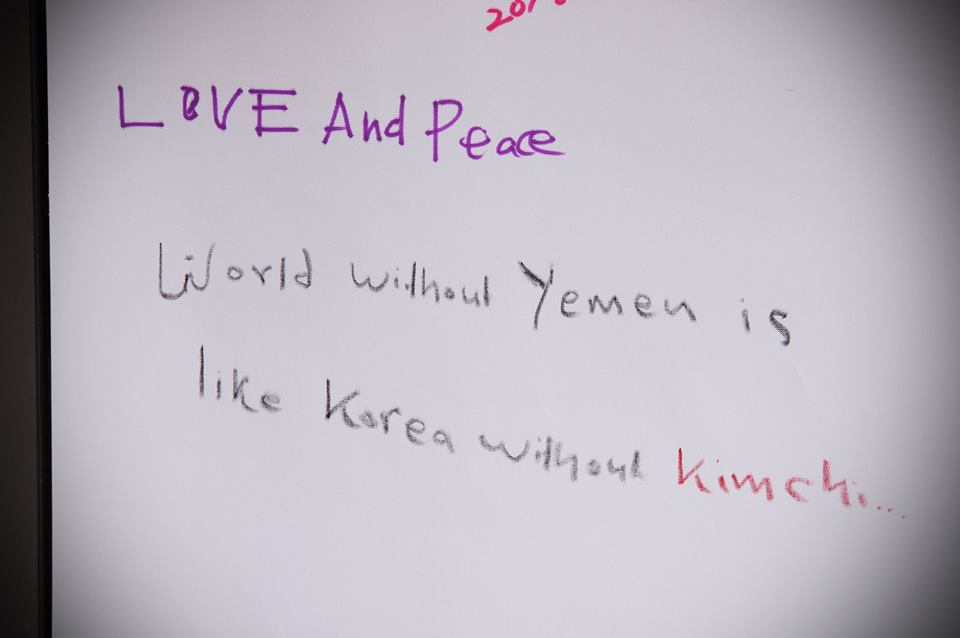 LOVE And Peace
World without Yemen is
like Korea without Kimchi...